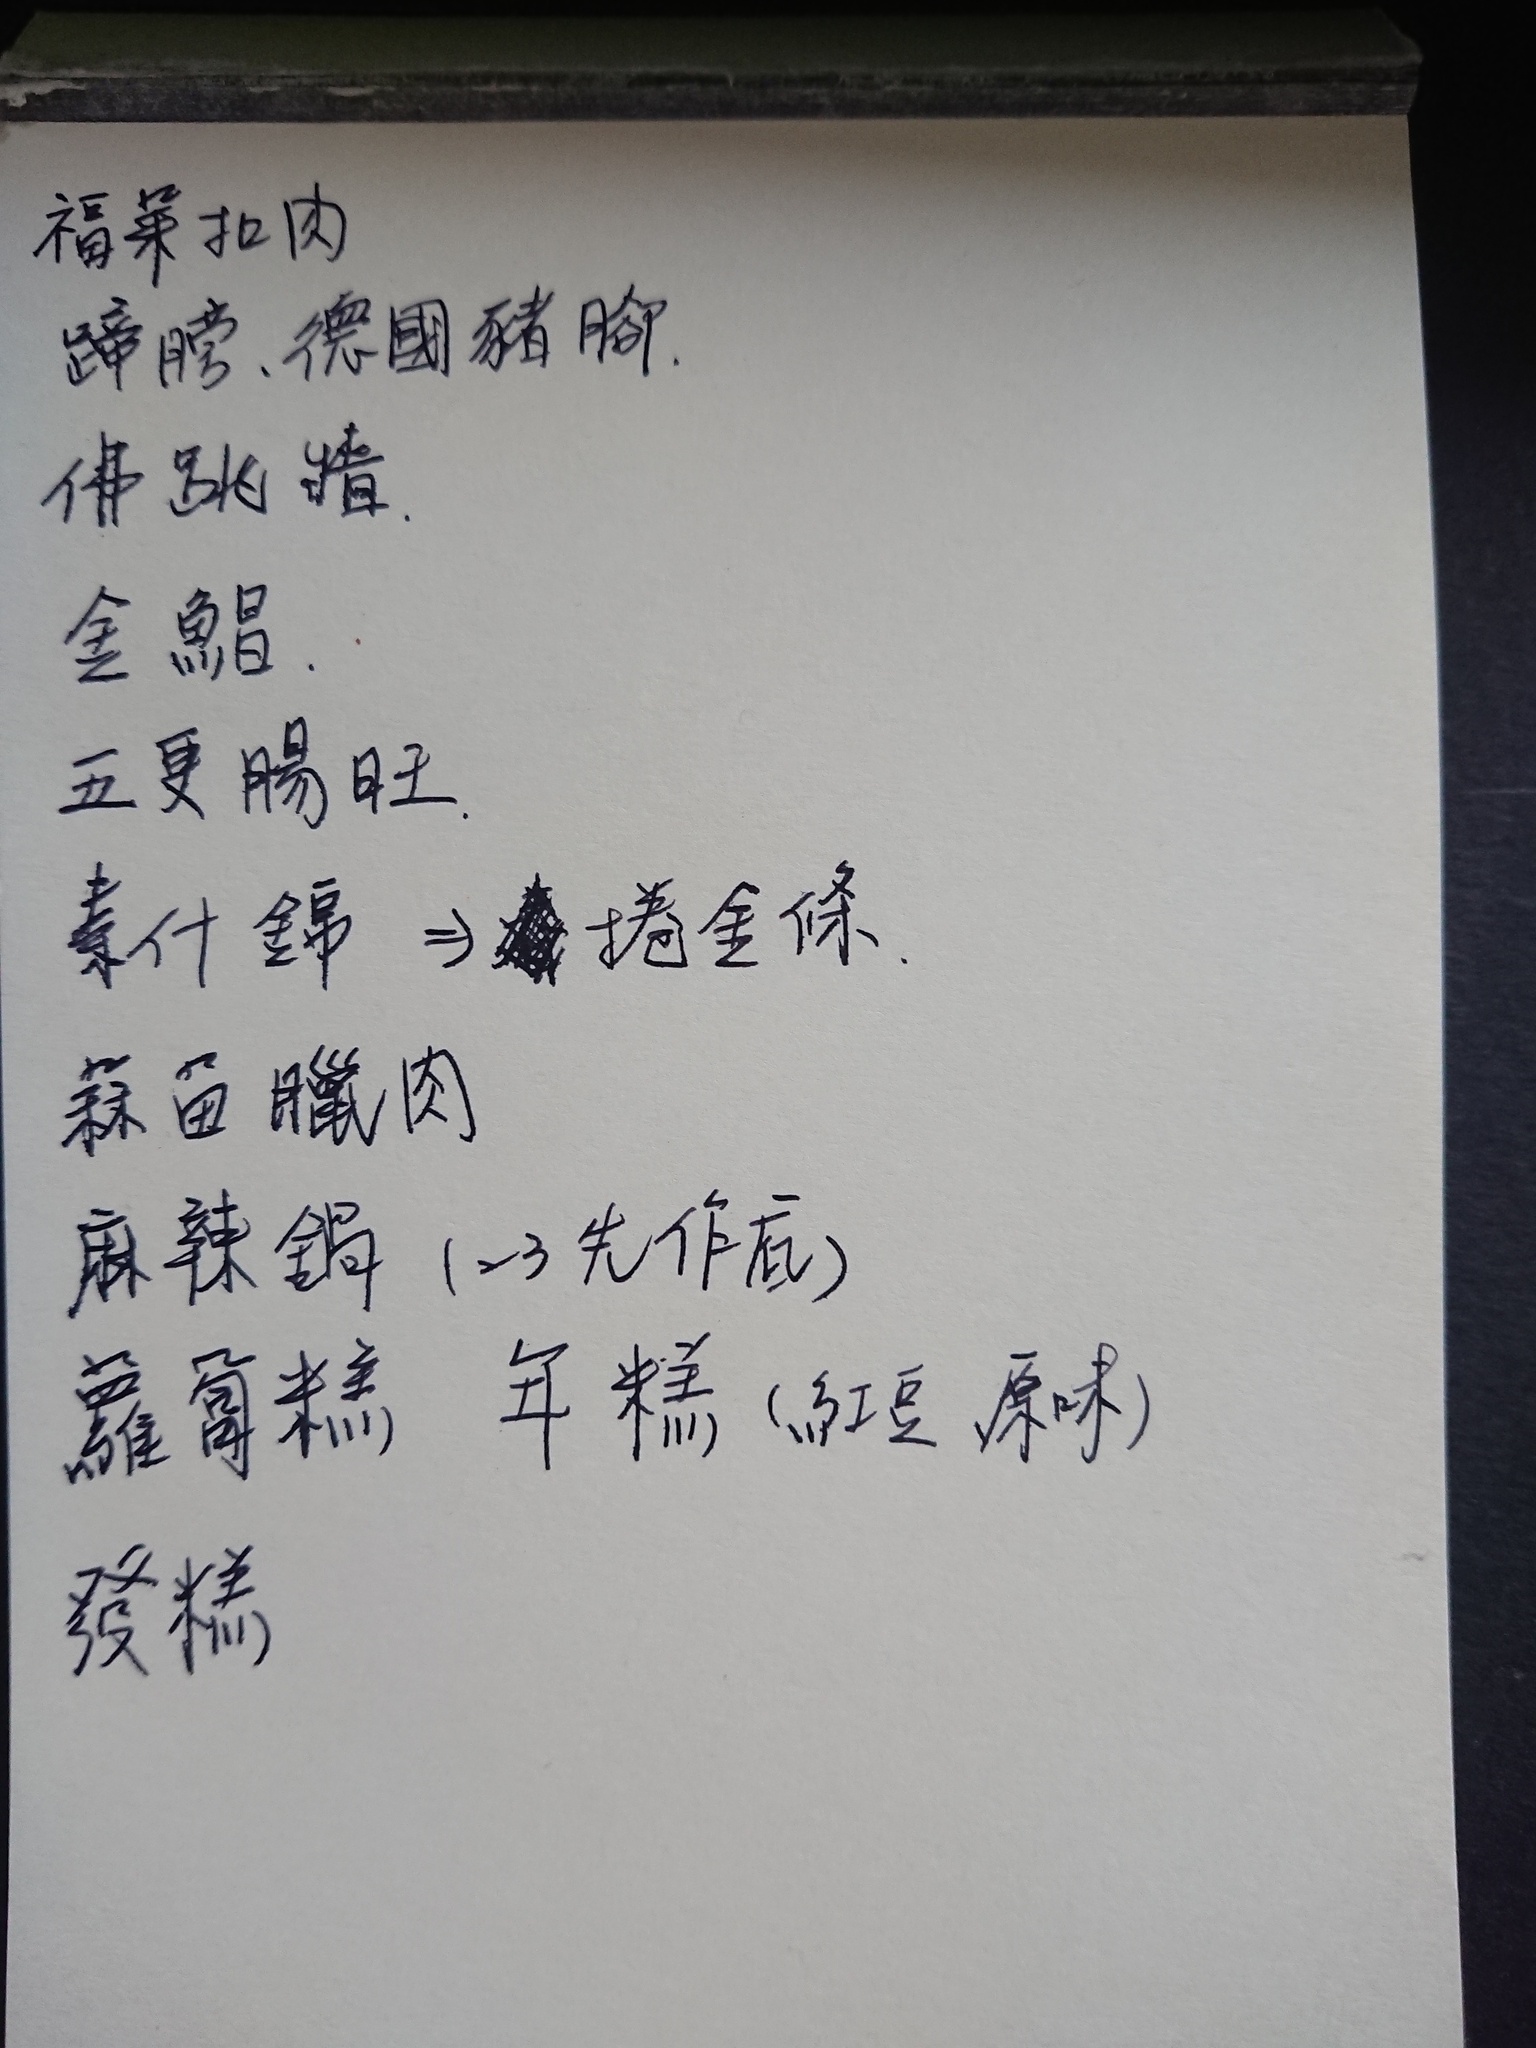 福菜扣肉
蹄膀、德國豬腳.
佛跳牆.
金鯧.
五更腸旺.
素什錦 ⇒ 捲金條.
蒜苗臘肉
麻辣鍋 (2~3先作底)
蘿蔔糕 年糕 (紅豆 原味)
發糕